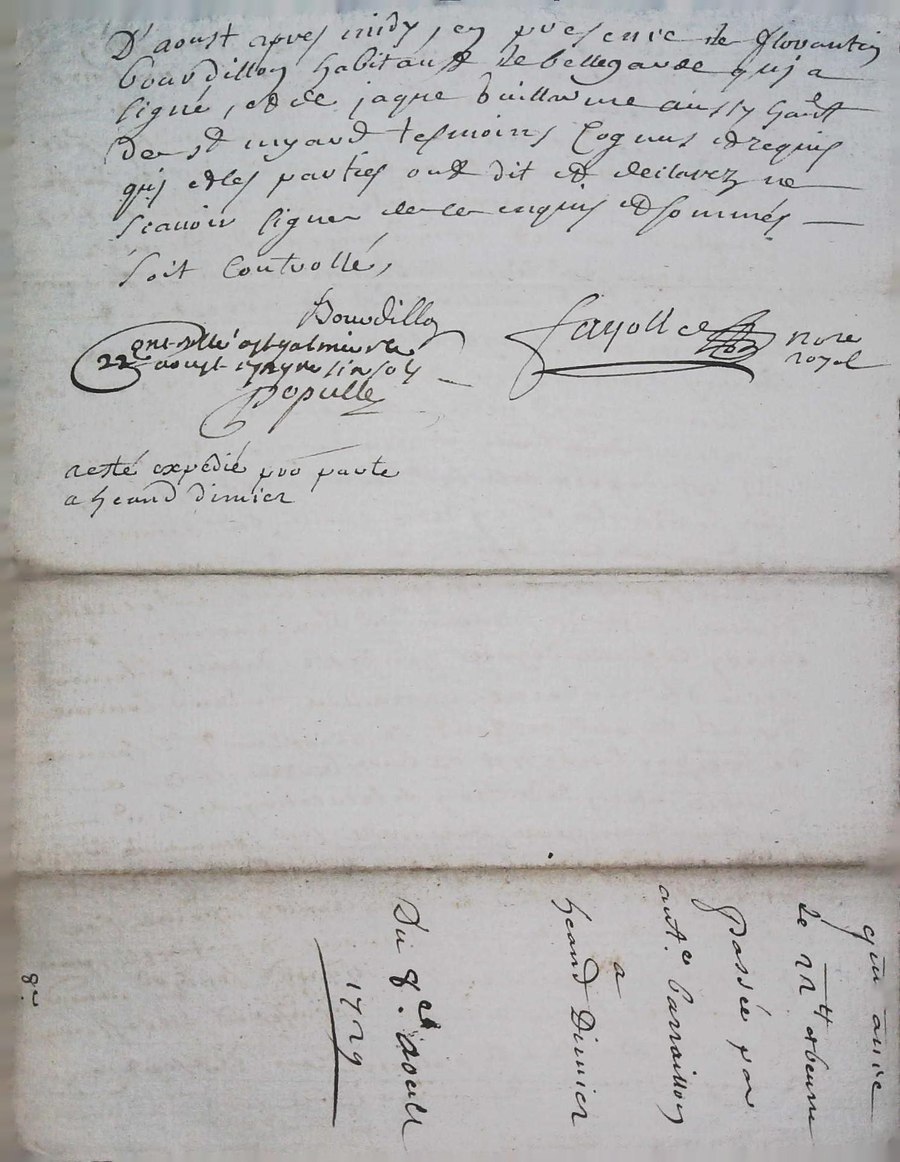 D'aoust apres midy, en presence de florantin
bourdillon habitant de bellegarde qui a
signé, et de jaque Guillaume aussy hant
de st myard tesmoins Cognus et requis
qui et les parties ont dit et declarez ne
scavoir signer de ce enquis et sommés
soit Controllé,
Bourdillon
Fayolle nore
royal
Contrllé a st galmier le
22 aoust
Populle
a esté expedié pro parte
a Jeand dimier
quittance
de 22 tt
Passée par
antt. barraillon
a
Jeand Dimier
Du 8e. aoust
1729
8e.